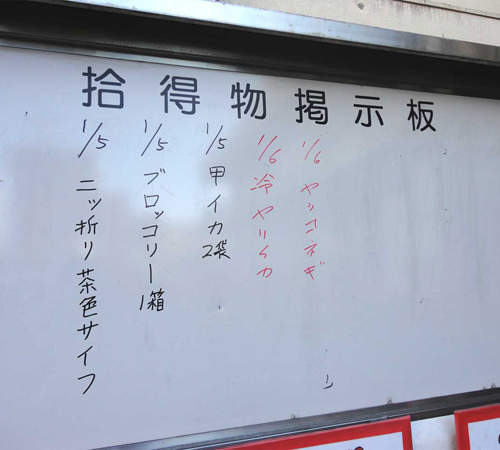 拾得物掲示板
1/5 二ッ折り茶色サイフ
1/5 ブロッコリー1箱
1/5 甲イカ2袋
1/6 冷ヤリイカ
1/6 ヤッコネギ